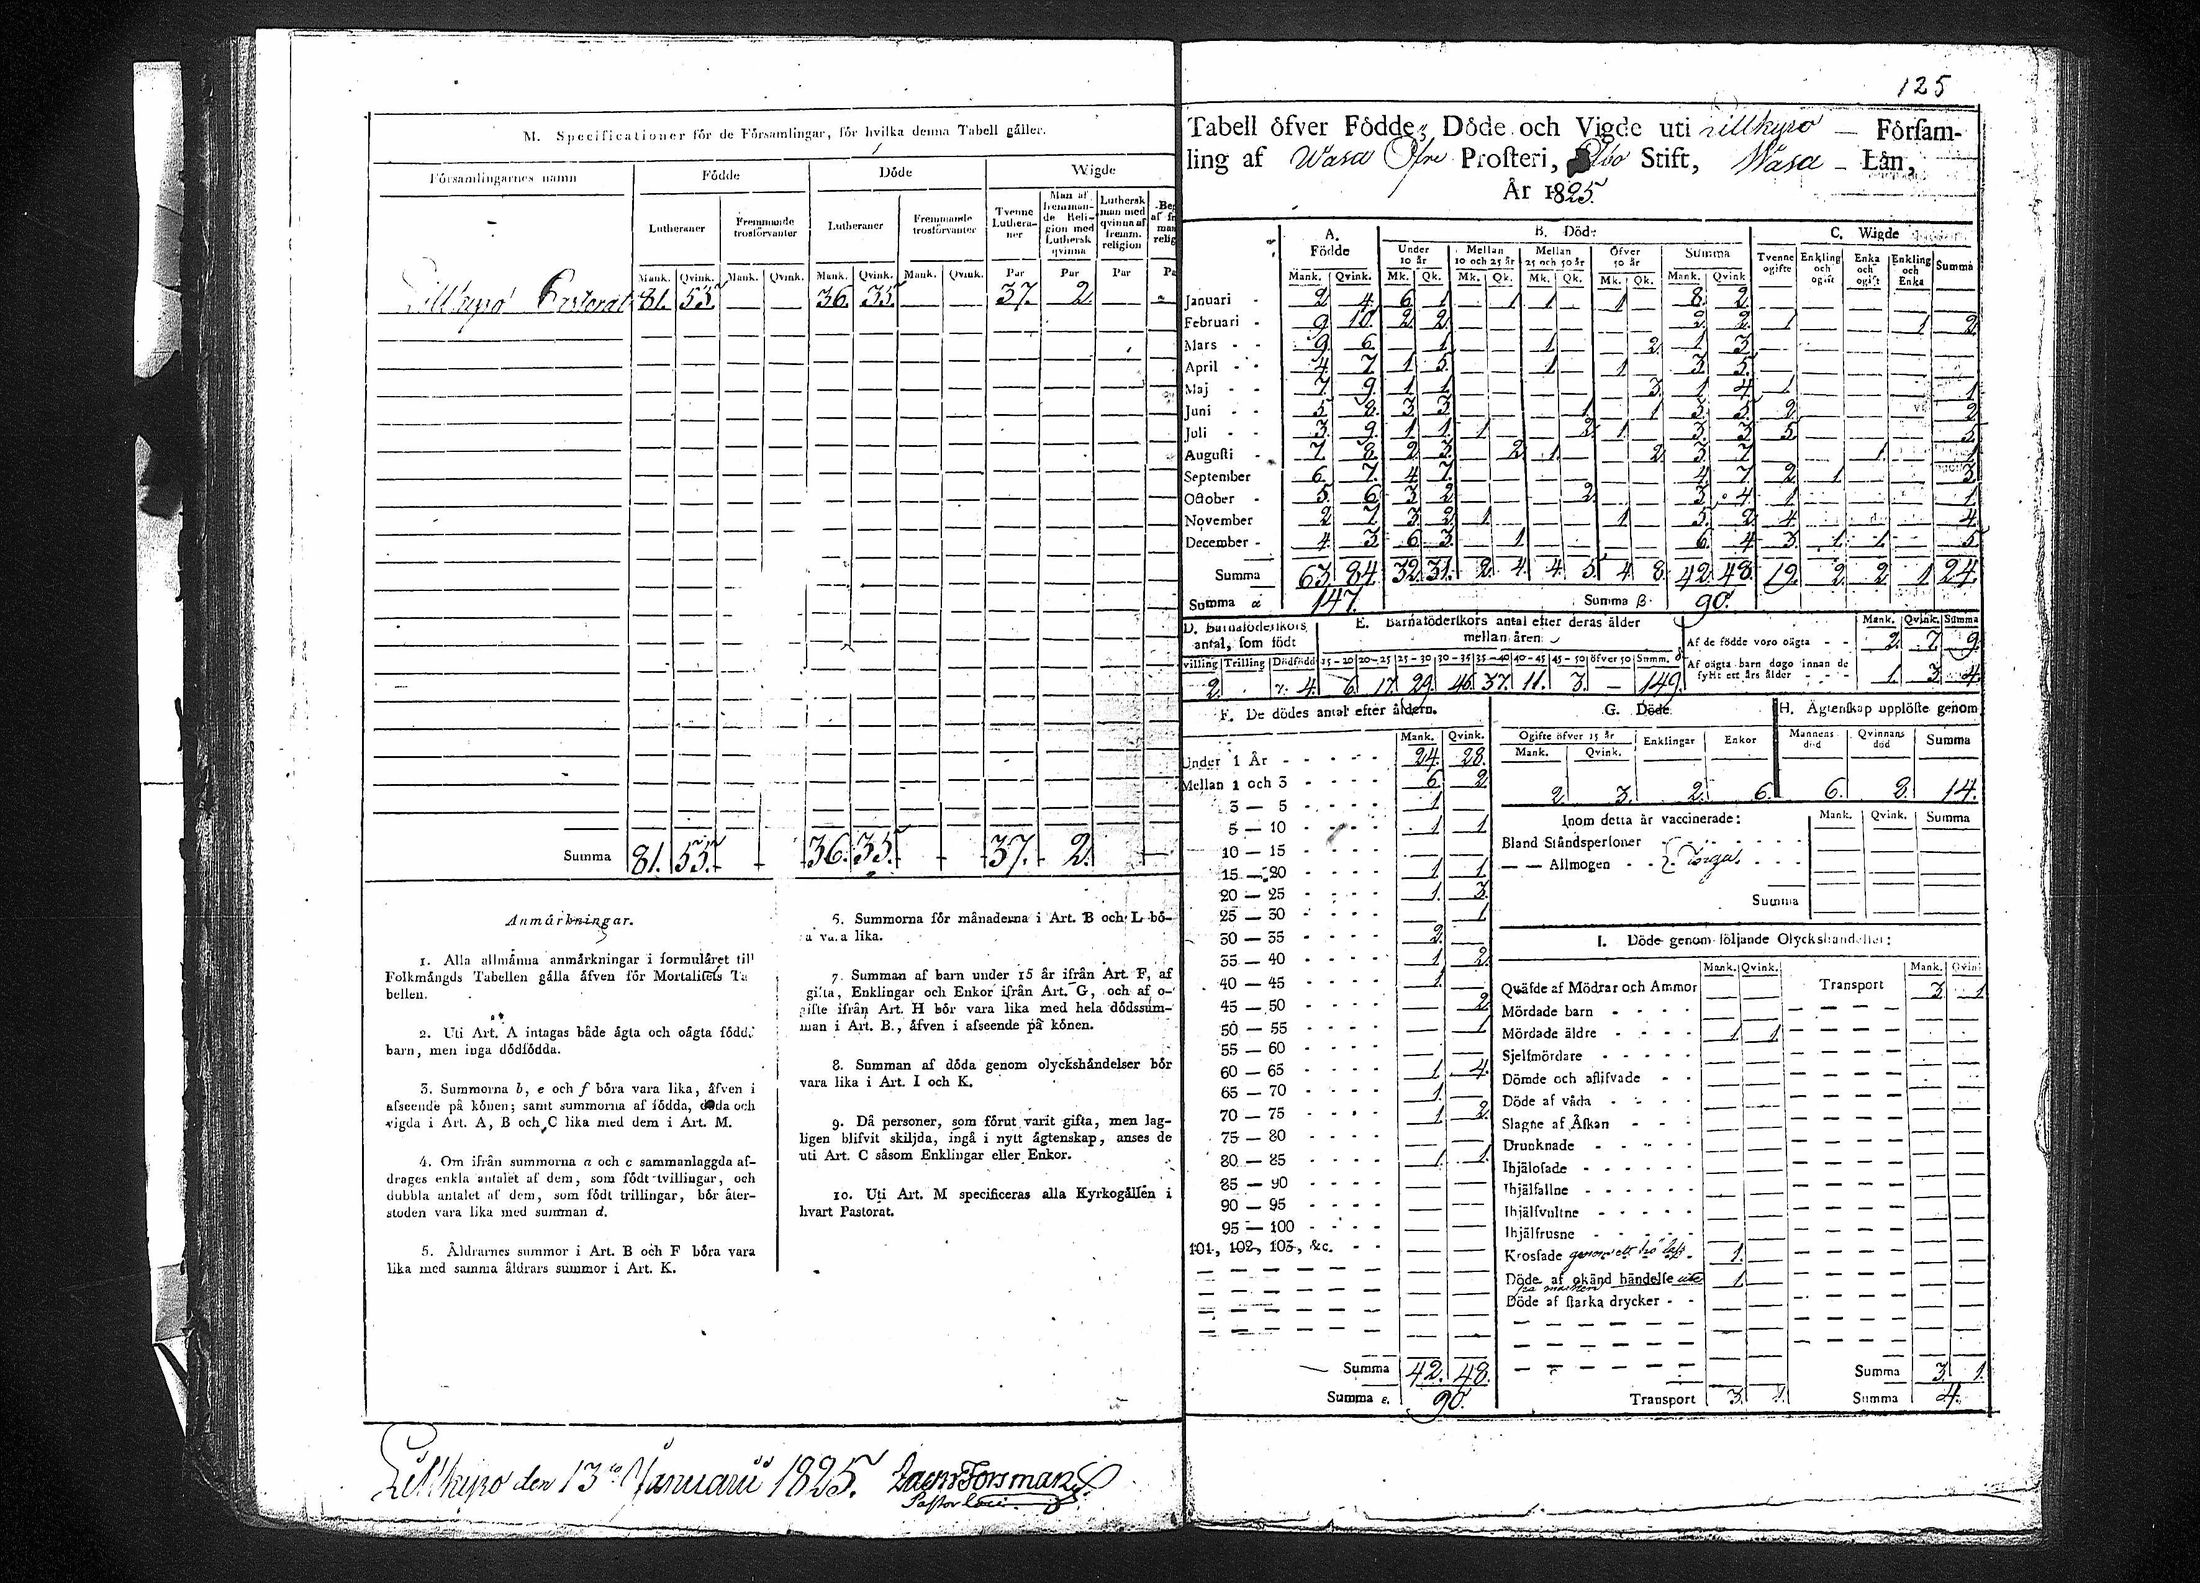 M. Specificationer för de Församlingar, för hvilka denna Tabell gäller.
Församlingarnes namn Födde Döde Wigde
Lutheraner Fremmande trosförvanter Lutheraner Fremmande trosförvanter Tvenne Lutheraner Man af fremmande Religion med Luthersk qvinna Luthersk man med qvinna af fremm. religion
Mank. Qvink. Mank. Qvink. Mank. Qvink. Mank. Qvink. Par Par Par
Lillkyro Pastorat 81. 53. — — 36. 35. — — 37. 2. —
Summa 81. 53. 36. 35. 37. 2. —
Anmärkningar.
1. Alla allmänna anmärkningar i formuläret till
Folkmängds Tabellen gälla äfven för Mortalitets Ta
bellen.
2. Uti Art. A intagas både ägta och oägta födda
barn, men inga dödfödda.
3. Summorna b, e och f böra vara lika, äfven i
afseende på könen; samt summorna af födda, döda och
vigda i Art. A, B och C lika med dem i Art. M.
4. Om ifrån summorna a och c sammanlaggda af-
drages enkla antalet af dem, som födt tvillingar, och
dubbla antalet af dem, som födt trillingar, bör åter-
stoden vara lika med summan d.
5. Åldrarnes summor i Art. B och F böra vara
lika med samma åldrars summor i Art. K.
6. Summorna för månaderna i Art. B och L bö-
a vara lika.
7. Summan af barn under 15 år ifrån Art. F, af
gifta, Enklingar och Enkor ifrån Art. G, och af o-
gifte ifrån Art. H bör vara lika med hela dödssum-
man i Art. B., äfven i afseende på könen.
8. Summan af döda genom olyckshändelser bör
vara lika i Art. I och K.
9. Då personer, som förut varit gifta, men lag-
ligen blifvit skiljda, ingå i nytt ägtenskap, anses de
uti Art. C såsom Enklingar eller Enkor.
10. Uti Art. M specificeras alla Kyrkogällen i
hvart Pastorat.
Lillkyro den 13de Januarii 1825. Zachr Forsman
Pastor loci.
125
Tabell öfver Födde, Döde och Vigde uti Lillkyro — Försam-
ling af Wasa Öfre Prosteri, Åbo Stift, Wasa — Län,
År 1825.
A. Födde B. Döde C. Wigde
Under 10 år Mellan 10 och 25 år Mellan 25 och 50 år Öfver 50 år Summa Tvenne ogifte Enkling och ogift Enka och ogift Enkling och Enka Summa
Mank. Qvink. Mk. Qk. Mk. Qk. Mk. Qk. Mk. Qk. Mank. Qvink
Januari 2. 4. 6. 1. 1. 1. 1. 8. 2.
Februari 9. 10. 2. 2. 2. 2. 1. 1. 2.
Mars 9. 6. 1. 1. 2. 1. 3.
April 4. 7. 1. 5. 1. 1. 3. 5.
Maj 7. 9. 1. 1. 3. 1. 4. 1. 1.
Juni 5. 8. 3. 3. 1. 1. 3. 5. 2. 2.
Juli 3. 9. 1. 1. 1. 2. 1. 3. 3. 5. 5.
Augusti 7. 8. 2. 3. 2. 1. 2. 3. 7. 1. 1.
September 6. 7. 4. 7. 4. 7. 2. 1. 3.
October 5. 6. 3. 2. 2. 3. 4. 1. 1.
November 2. 7. 3. 2. 1. 1. 5. 2. 4. 4.
December 4. 3. 6. 3. 1. 6. 4. 3. 1. 1. 5.
Summa 63. 84. 32. 31. 2. 4. 4. 5. 4. 8. 42. 48. 19. 2. 2. 1. 24.
Summa α 147. Summa β 90.
D. Barnaföderskors antal, som födt
E. Barnaföderskors antal efter deras ålder mellan åren
villing Trilling Dödfödd 15—20 20—25 25—30 30—35 35—40 40—45 45—50 öfver 50 Summ. δ
2. 4. 6. 17. 29. 46. 37. 11. 3. — 149.
Mank. Qvink. Summa
Af de födde voro oägta 2. 7. 9.
Af oägta barn dogo innan de fyllt ett års ålder 1. 3. 4.
F. De dödes antal efter åldern.
Mank. Qvink.
Under 1 År 24. 28.
Mellan 1 och 3 6. 2.
3 — 5 1.
5 — 10 1. 1.
10 — 15
15 — 20 1. 1.
20 — 25 1. 3.
25 — 30 1.
30 — 35 2.
35 — 40 1. 2.
40 — 45 1.
45 — 50 2.
50 — 55 1.
55 — 60
60 — 65 1. 4.
65 — 70 1.
70 — 75 1. 2.
75 — 80
80 — 85 1. 1.
85 — 90
90 — 95
95 — 100
101, 102, 103, &c.
Summa 42. 48.
Summa ε. 90.
G. Döde
Ogifte öfver 15 år Enklingar Enkor
Mank. Qvink.
2. 3. 2. 6.
H. Ägtenskap upplöste genom
Mannens död Qvinnans död Summa
6. 8. 14.
Inom detta år vaccinerade: Mank. Qvink. Summa
Bland Ståndspersoner
— — Allmogen Inga.
Summa
I. Döde genom följande Olyckshändelser:
Mank. Qvink. Mank. Qvink
Qväfde af Mödrar och Ammor Transport 3. 1.
Mördade barn
Mördade äldre 1. 1.
Sjelfmördare
Dömde och aflifvade
Döde af våda
Slagne af Åskan
Drunknade
Ihjälosade
Ihjälfallne
Ihjälsvultne
Ihjälfrusne
Krossade genom ett hö lass 1.
Döde af okänd händelse ute på marken 1.
Döde af starka drycker
Summa 3. 1.
Transport 3. 1. Summa 4.